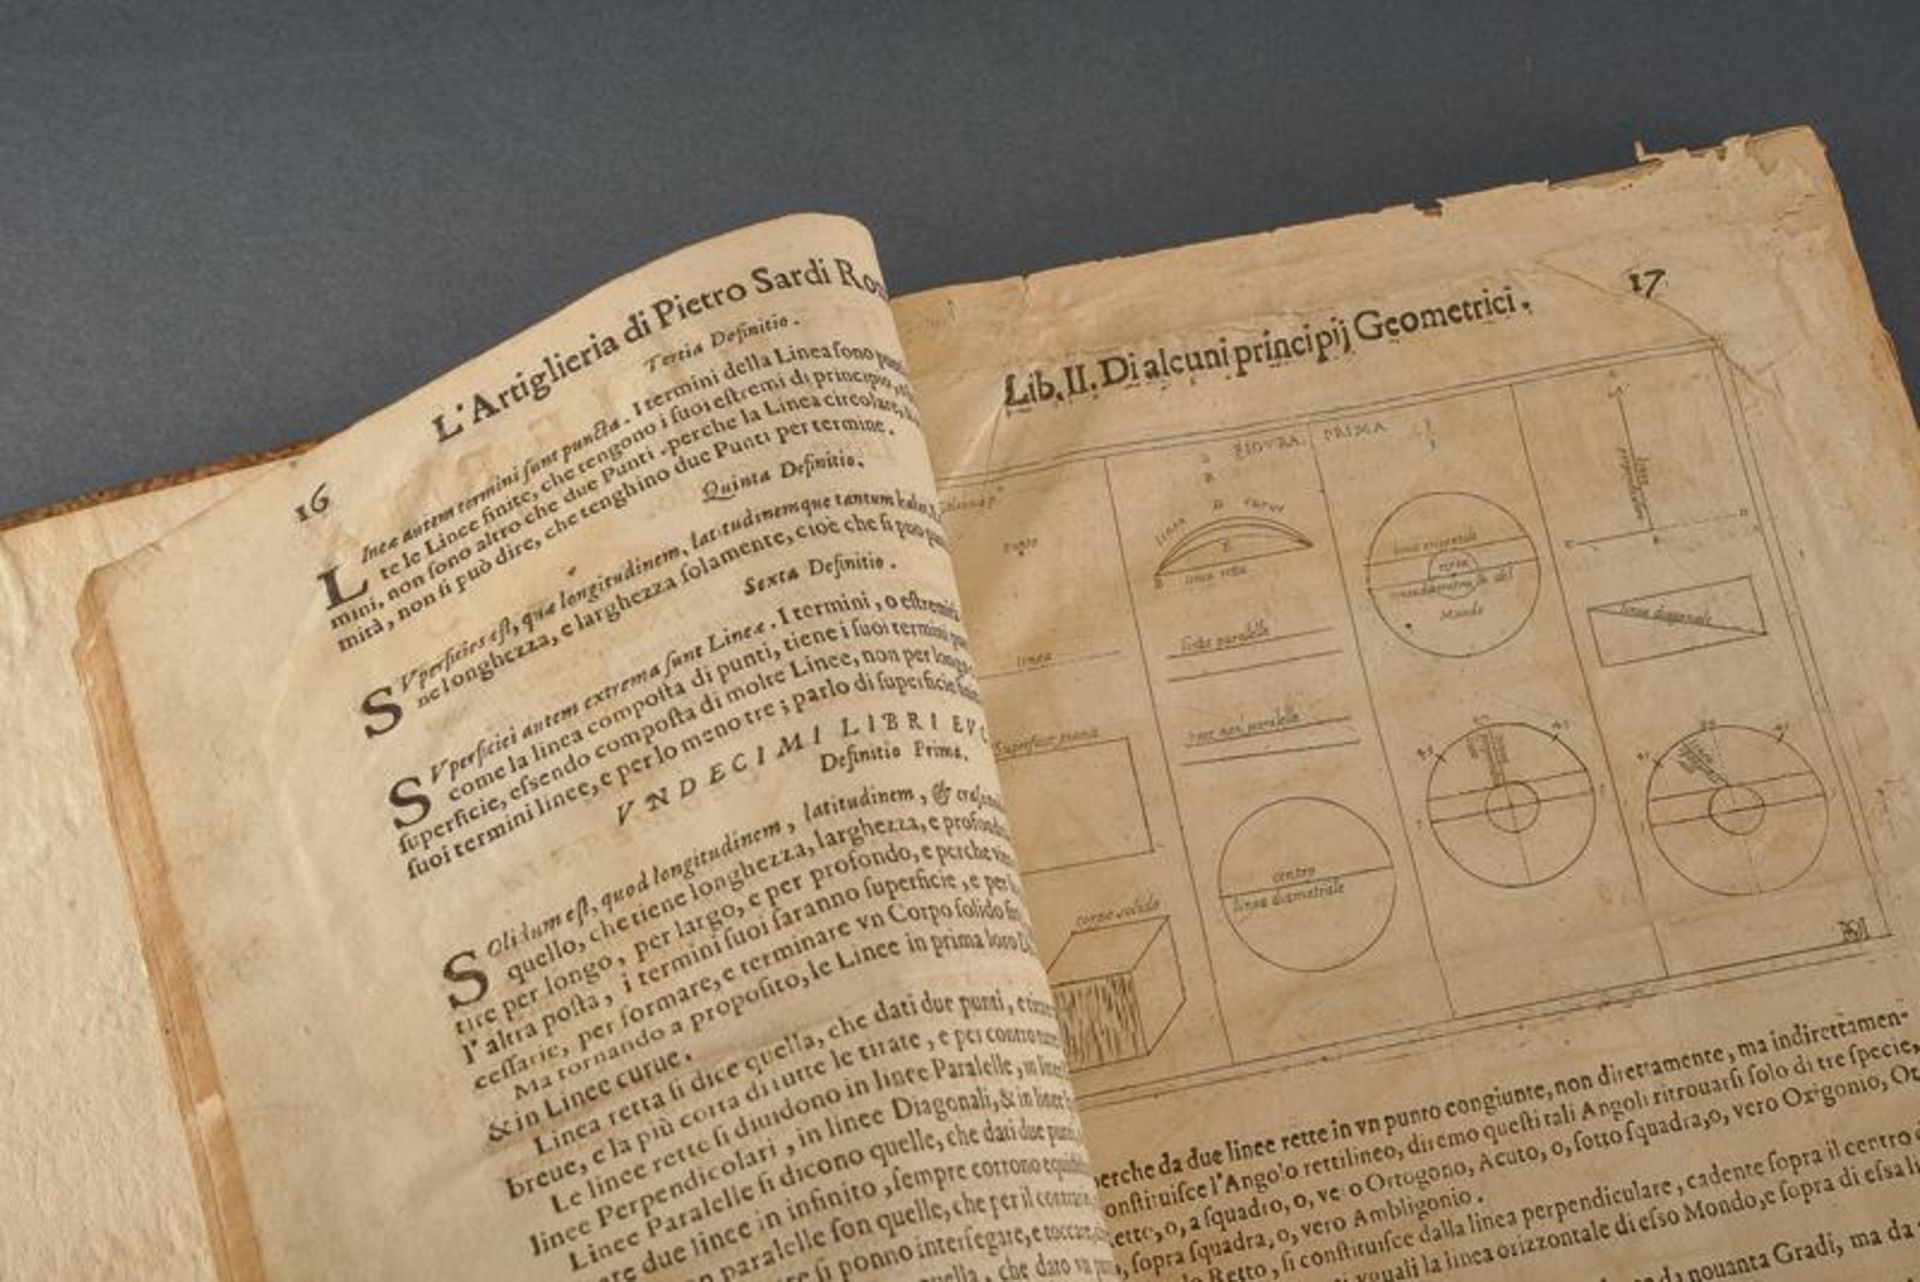 16
L'Artiglieria di Pietro Sardi Ro
Tertia Definitio.
LIneæ autem termini sunt puncta. I termini della Linea sono
te le Linee finite, che tengono i suoi estremi di principio,
mini, non sono altro che due Punti, perche la Linea circolare,
mità, non si può dire, che tenghino due Punti per termine.
Quinta Definitio.
SVperficies est, quæ longitudinem, latitudinemque tantum
ne longhezza, e larghezza solamente, cioè che si può
Sexta Definitio.
SVperficiei autem extrema sunt Lineæ. I termini, o
come la linea composta di punti, tiene i suoi termini
superficie, essendo composta di molte Linee, non per
suoi termini linee, e per lo meno tre; parlo di superficie
VNDECIMI LIBRI EVC
Definitio Prima.
SOlidum est, quod longitudinem, latitudinem, &
quello, che tiene longhezza, larghezza, e
tire per longo, per largo, e per profondo, e perche
l'altra posta, i termini suoi saranno superficie, e per
cessarie, per formare, e terminare vn Corpo solido
Ma tornando a proposito, le Linee in prima loro
& in Linee curue.
Linea retta si dice quella, che dati due punti, e
breue, e la più corta di tutte le tirate, e per contro
Le linee rette si diuidono in linee Paralelle, in
linee Perpendicolari, in linee Diagonali, & in
Linee Paralelle si dicono quelle, che dati due
due linee in infinito, sempre corrono
paralelle son quelle, che per il
si ponno intersegare, e
che dato
17
Lib. II. Di alcuni principij Geometrici.
FIGVRA PRIMA
Punto
linea
Superficie piana
corpo solido
linea curue
linea retta
linee paralelle
linee non paralelle
centro
linea diametrale
linea orizontale
terra
del
Mondo
linea
linea diagonale
perche da due linee rette in vn punto congiunte, non direttamente, ma indirettamen-
constituisce l'Angolo rettilineo, diremo questi tali Angoli ritrouarsi solo di tre specie,
o, a squadro, o, vero Ortogono, Acuto, o, sotto squadra, o, vero Oxigonio,
sopra squadra, o, vero Ambligonio.
Retto, si constituisce dalla linea perpendiculare, cadente sopra il centro
la linea orizzontale di esso Mondo, e sopra di essa
da nouanta Gradi, ma da